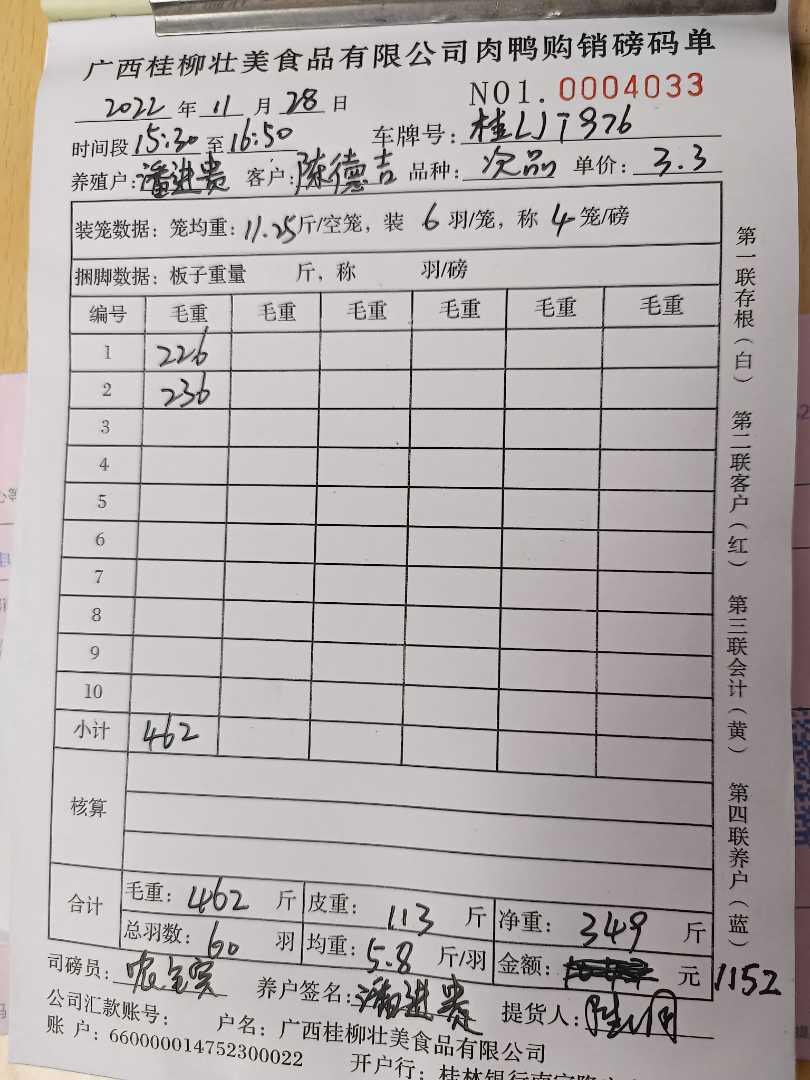 广西桂柳壮美食品有限公司肉鸭购销磅码单
2022年11月28日 NO1. 0004033
时间段15:30至16:50 车牌号:桂LJT976
养殖户:潘进贵 客户:陈德吉 品种:次品 单价:3.3
装笼数据:笼均重:11.25斤/空笼,装6羽/笼,称4笼/磅
捆脚数据:板子重量 斤,称 羽/磅
编号 毛重 毛重 毛重 毛重 毛重 毛重
1 226
2 236
3
4
5
6
7
8
9
10
小计 462
核算
合计 毛重:462斤 皮重:113斤 净重:349斤
总羽数:60羽 均重:5.8斤/羽 金额: 元 1152
司磅员: 养户签名:潘进贵 提货人:
公司汇款账号: 户名:广西桂柳壮美食品有限公司
账户:660000014752300022 开户行:桂林银行南宁隆
第一联存根(白) 第二联客户(红) 第三联会计(黄) 第四联养户(蓝)